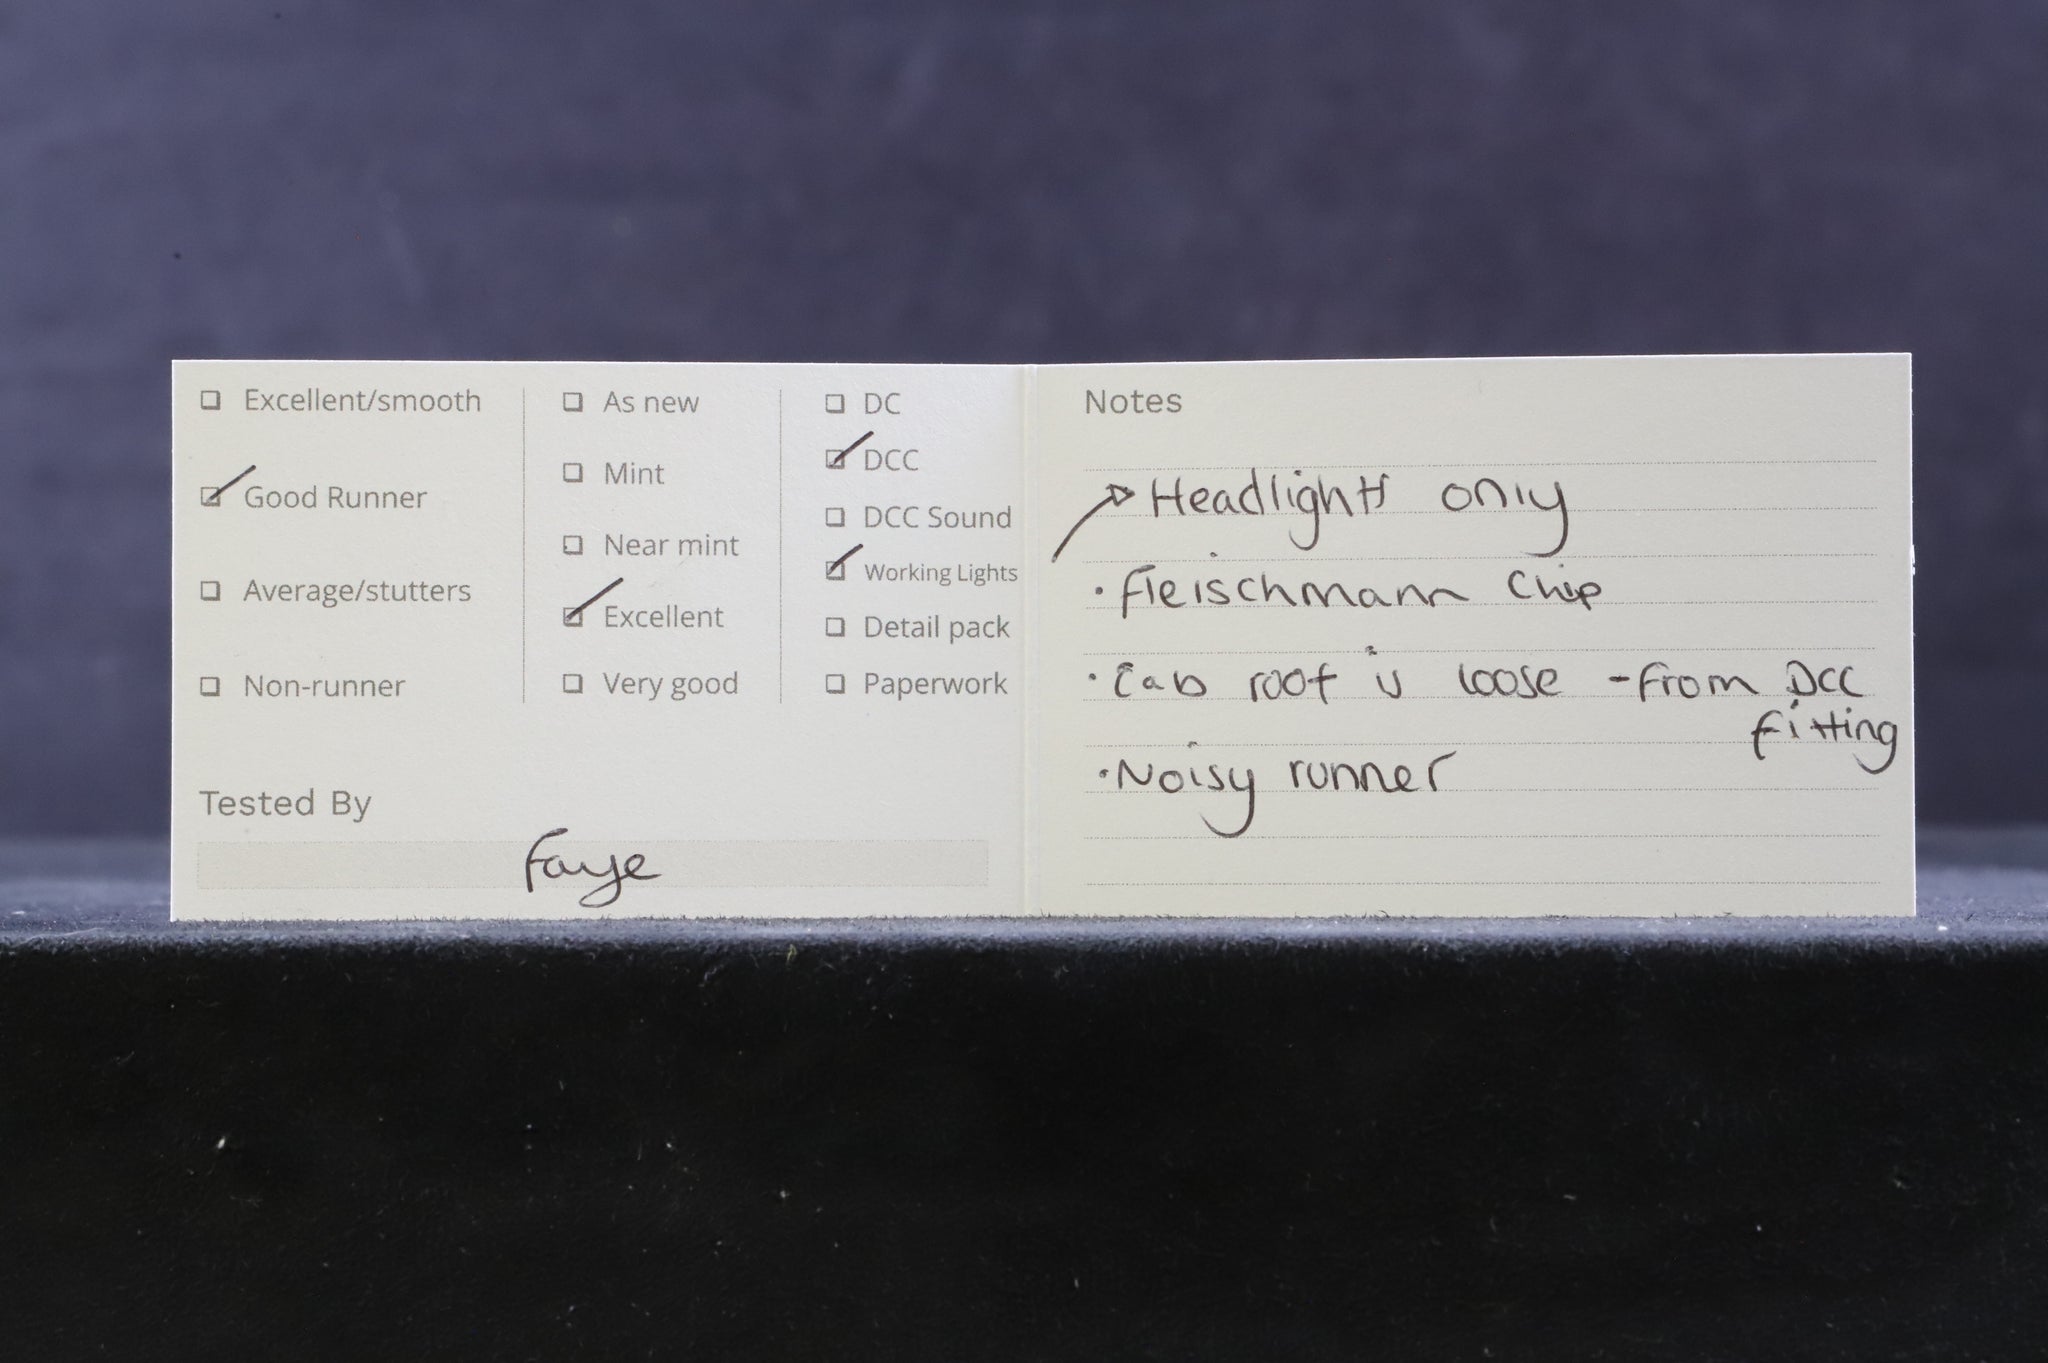 Excellent/smooth
Good Runner
Average/stutters
Non-runner
As new
Mint
Near mint
Excellent
Very good
DC
DCC
DCC Sound
Working Lights
Detail pack
Paperwork
Tested By
Faye
Notes
Headlights only
• Fleischmann Chip
• Cab roof is loose - from DCC
fitting
• Noisy runner